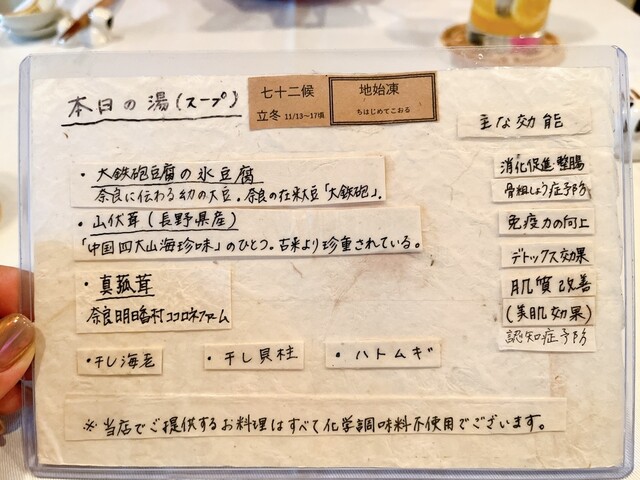 本日の湯(スープ)
七十二候
立冬 11/13〜17頃
地始凍
ちはじめてこおる
主な効能
・大鉄砲豆腐の氷豆腐
奈良に伝わる幻の大豆。奈良の在来大豆「大鉄砲」。
・山伏茸(長野県産)
「中国四大山海珍味」のひとつ。古来より珍重されている。
・真菰茸
奈良明日香村ココロネファーム
・干し海老
・干し貝柱
・ハトムギ
消化促進・整腸
骨粗しょう症予防
免疫力の向上
デトックス効果
肌質改善
(美肌効果)
認知症予防
※当店でご提供するお料理はすべて化学調味料不使用でございます。